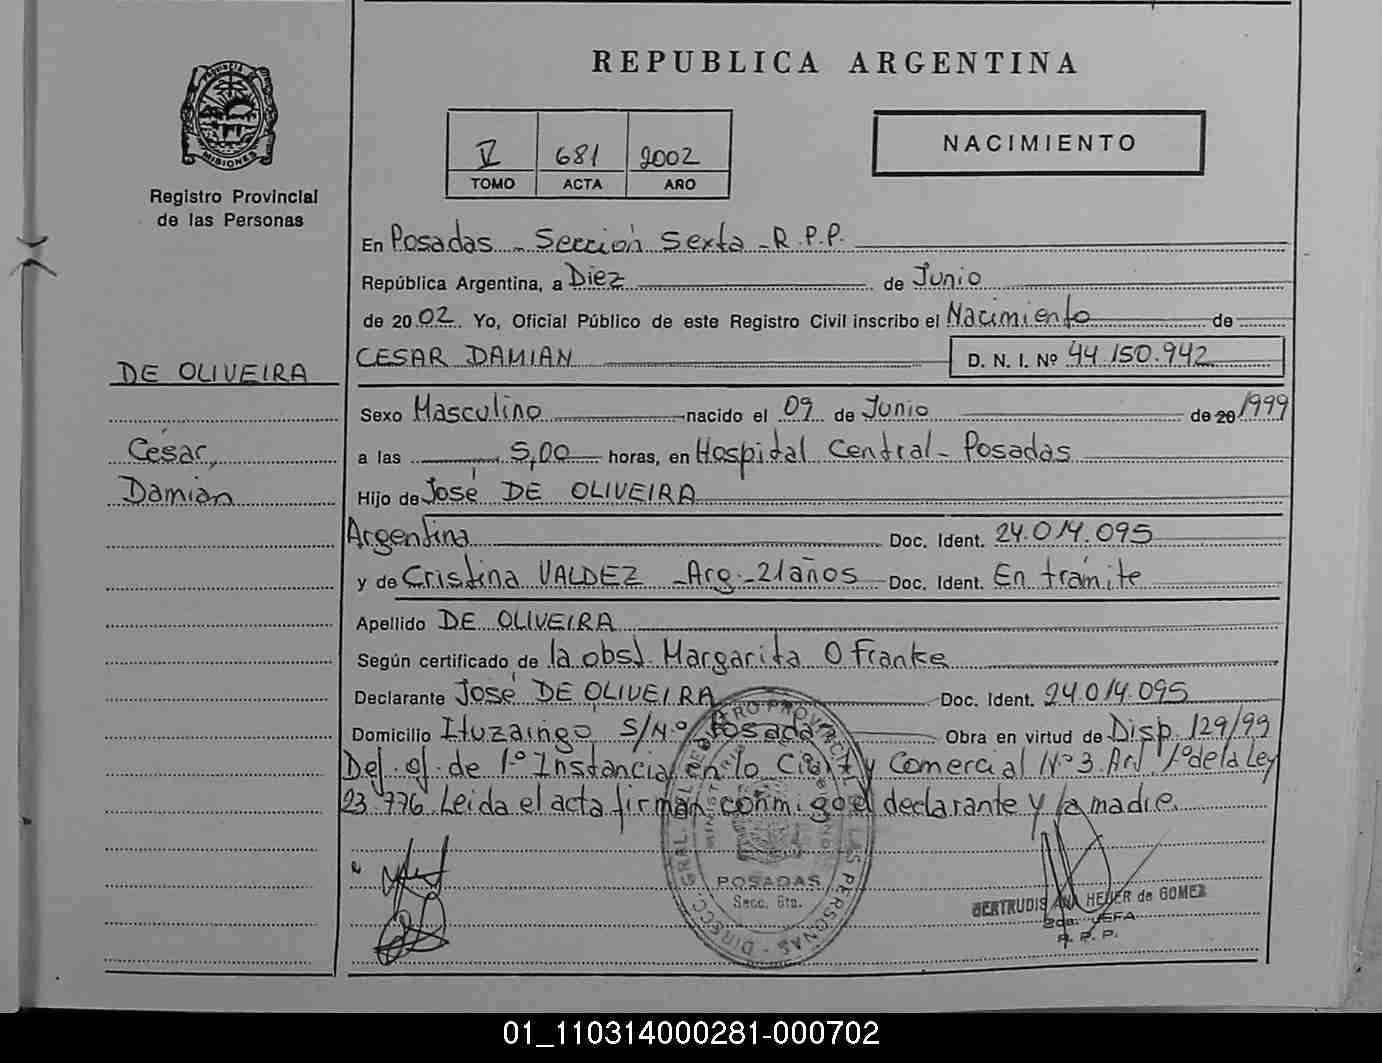 REPUBLICA ARGENTINA
PROVINCIA
MISIONES
Registro Provincial
de las Personas
V 681 2002
TOMO ACTA AÑO
NACIMIENTO
En Posadas - Sección Sexta - R.P.P.
República Argentina, a Diez de Junio
de 2002 Yo, Oficial Público de este Registro Civil inscribo el Nacimiento de
CESAR DAMIAN D. N. I. Nº 44.150.942
DE OLIVEIRA
César,
Damian
Sexo Masculino nacido el 09 de Junio de 20 1999
a las 5,00 horas, en Hospital Central - Posadas
Hijo de José DE OLIVEIRA
Argentina Doc. Ident. 24.014.095
y de Cristina VALDEZ - Arg - 21 años Doc. Ident. En trámite
Apellido DE OLIVEIRA
Según certificado de la obst. Margarita O Franke
Declarante José DE OLIVEIRA Doc. Ident. 24.014.095
Domicilio Ituzaingó S/Nº Posadas Obra en virtud de Disp. 129/99
Def. of. de 1º Instancia en lo Civil y Comercial Nº 3. Art. 1º de la Ley
23.776. Leida el acta firman conmigo el declarante y la madre.
DIRECC. GRAL. DEL REGISTRO PROVINCIAL DE LAS PERSONAS
POSADAS
Secc. 6ta.
GERTRUDIS ANA HEUER de GOMEZ
2da. JEFA
R. P. P.
01_110314000281-000702